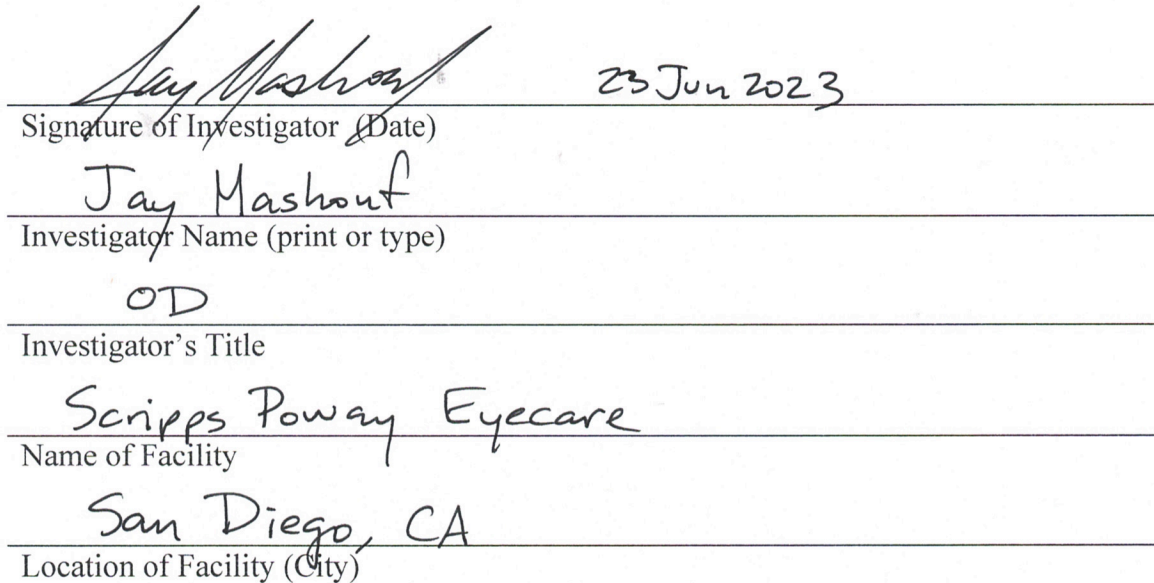 Jay Mashouf 23 Jun 2023
Signature of Investigator (Date)
Jay Mashouf
Investigator Name (print or type)
OD
Investigator's Title
Scripps Poway Eyecare
Name of Facility
San Diego, CA
Location of Facility (City)